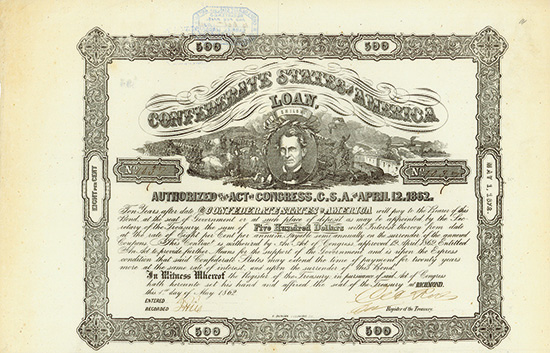 500 500
CONFEDERATE STATES of AMERICA
LOAN.
No No
AUTHORIZED by the ACT of CONGRESS, C.S.A. of APRIL 12. 1862.
EIGHT PER CENT
MAY 1, 1872.
Ten Years after date the CONFEDERATE STATES of AMERICA will pay to the Bearer of this
Bond, at the seat of Government or at such place of deposit as may be appointed by the Sec-
retary of the Treasury the sum of Five Hundred Dollars with Interest thereon from date
at the rate of Eight per Cent per annum, payable semi annually on the surrender of the annexed
Coupons. This Contract is authorized by the Act of Congress approved 12 April 1862 Entitled
"An Act to provide further Means for the support of the Government" and is upon the Express
condition that said Confederate States may extend the time of payment for twenty years
more at the same rate of interest, and upon the surrender of this Bond.
In Witness Whereof the Register of the Treasury, in pursuance of said Act of Congress
hath hereunto set his hand and affixed the seal of the Treasury at RICHMOND,
this 1st day of May 1862
ENTERED
RECORDED
Register of the Treasury.
500 500